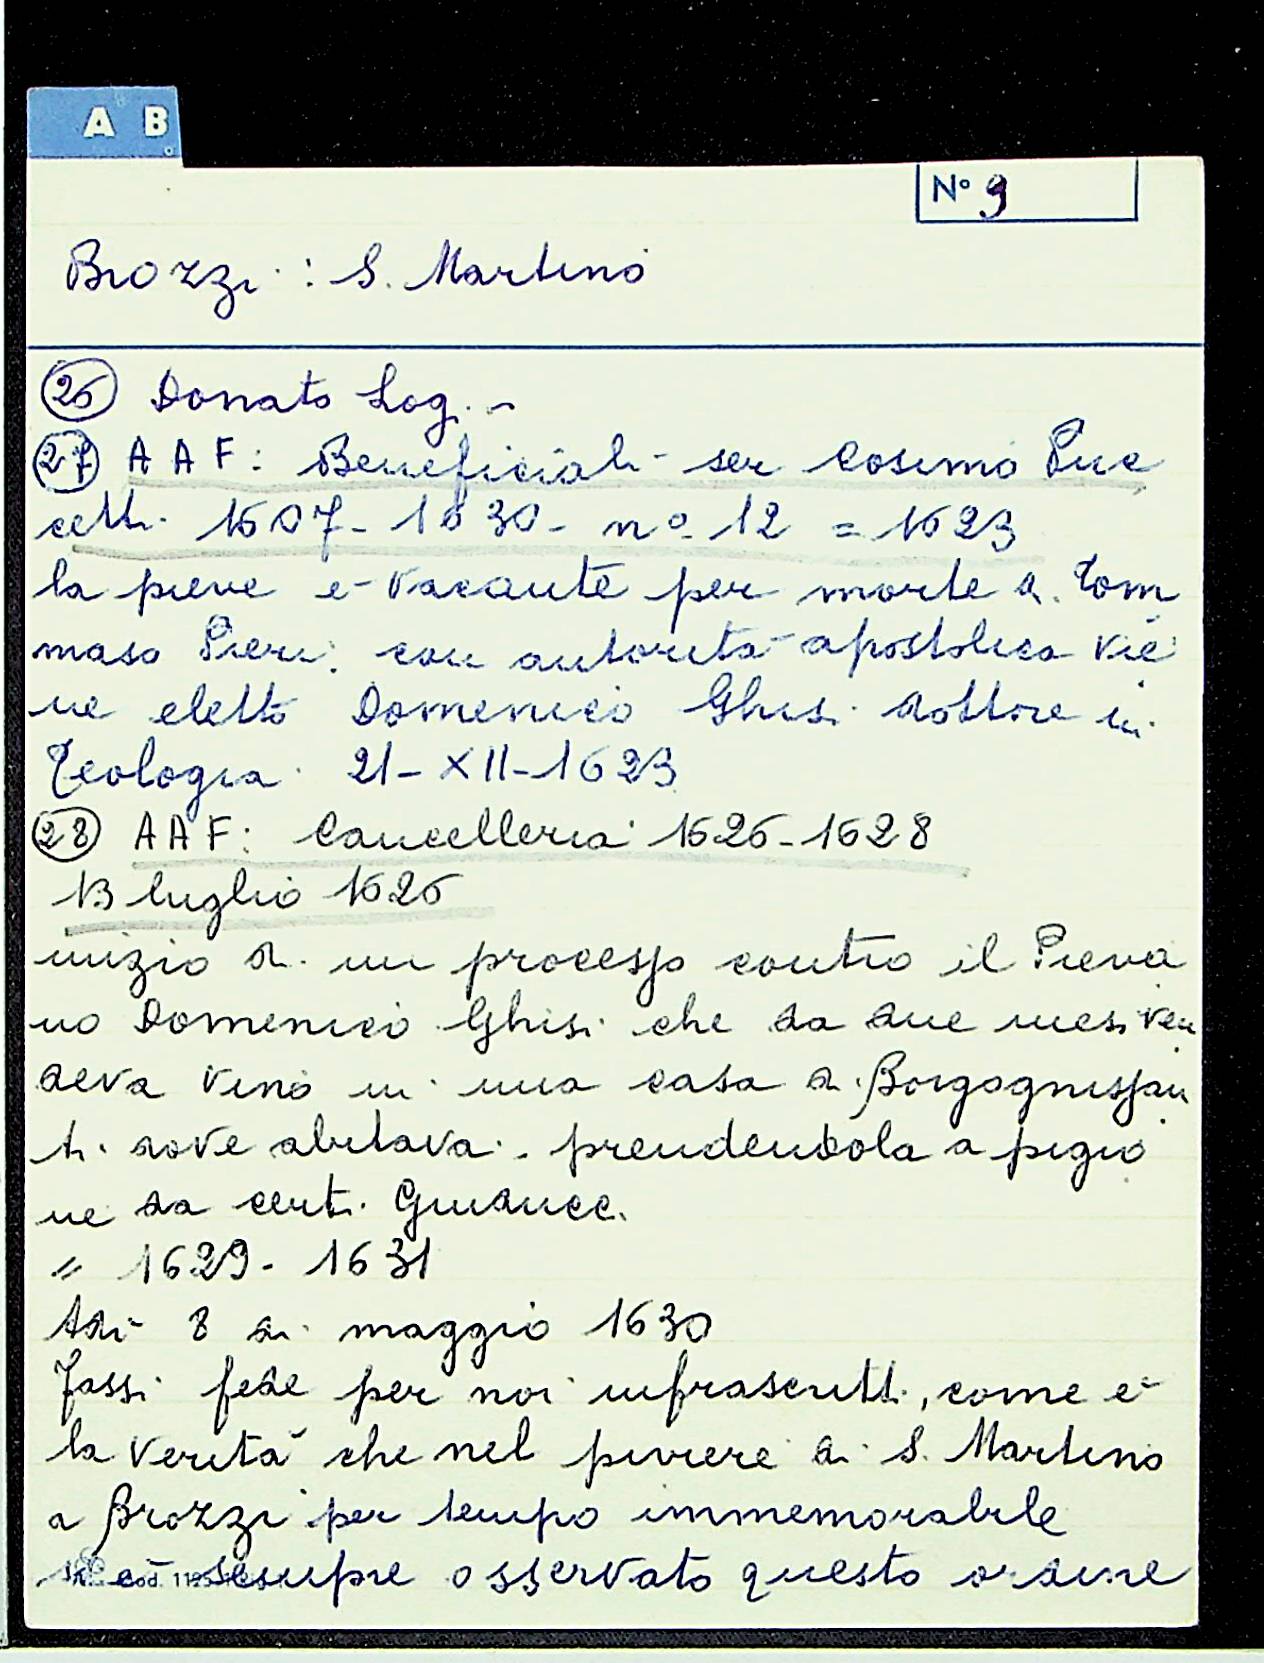 A B
N° 9
Brozzi : S. Martino
26 Donato Log. -
27 AAF: Beneficiali - ser Cosimo Puc
cetti 1607-1630 - n° 12 = 1623
la pieve è vacante per morte di Tom
maso Pieri: con autorità apostolica vie
ne eletto Domenico Ghisi dottore in
Teologia 21-XII-1623
28 AAF: Cancelleria 1626-1628
13 luglio 1626
inizio di un processo contro il Pieva
no Domenico Ghisi che da due mesi ven
deva vino in una casa di Borgognissan
ti dove abitava - prendendola a pigio
ne da certi Guiducci
" 1629 - 1631
Adì 8 di maggio 1630
Fassi fede per noi infrascritti, come è
la verità che nel piviere di S. Martino
a Brozzi per tempo immemorabile
si è sempre osservato questo ordine